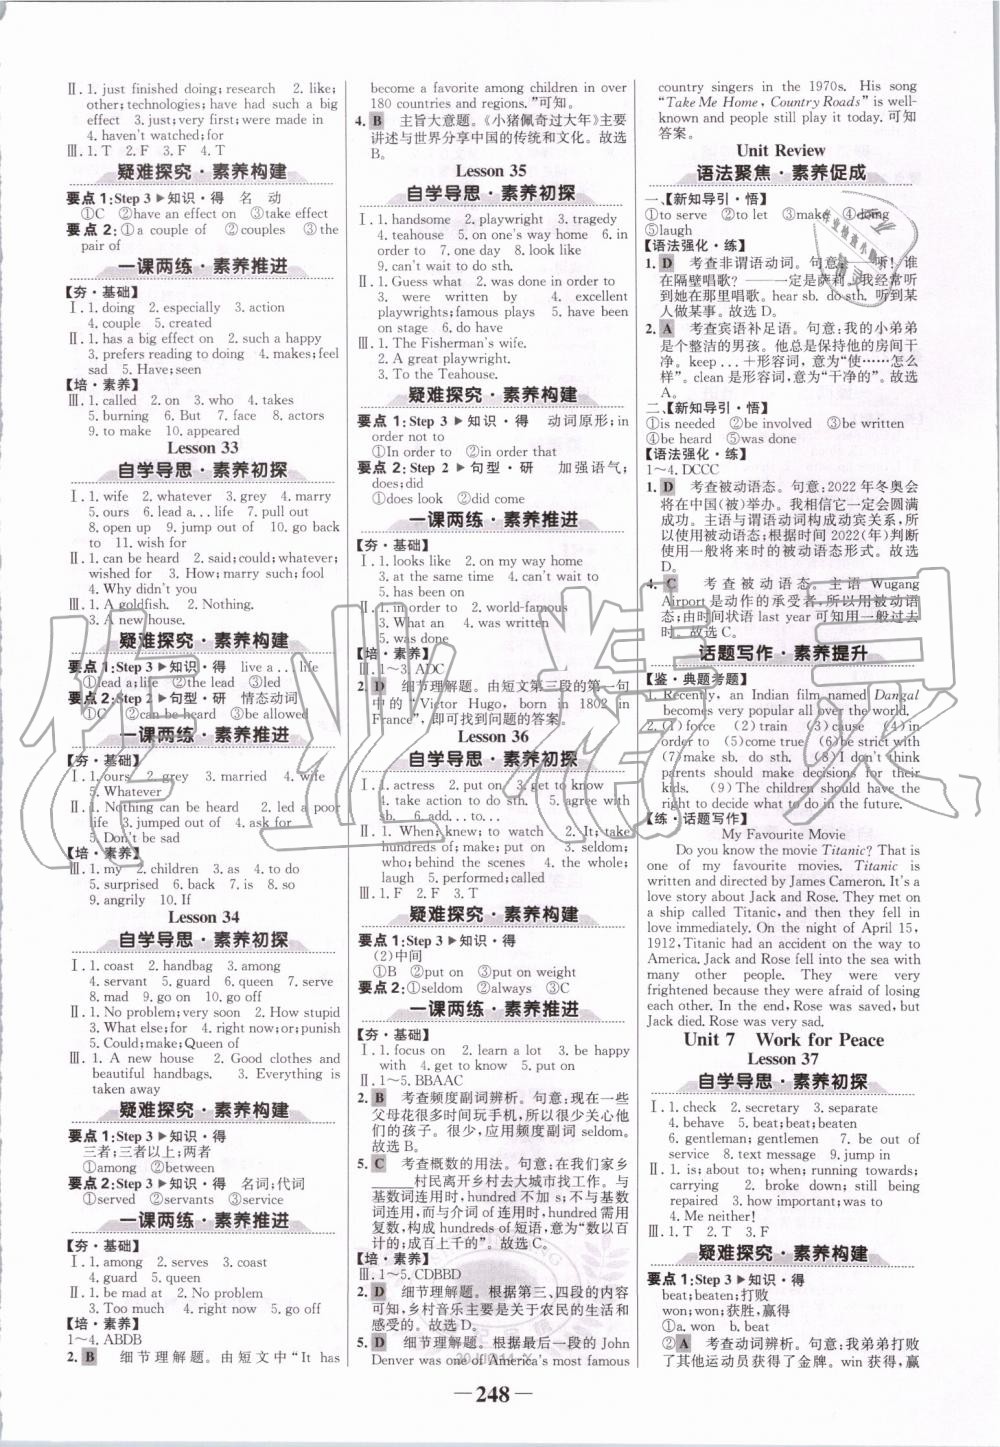 Ⅱ. 1. just finished doing; research 2. like;
other; technologies; have had such a big
effect 3. just; very first; were made in
4. haven't watched; for
Ⅲ. 1. T 2. F 3. F 4. T
疑难探究·素养构建
要点1:Step 3▶知识·得 名 动
①C ②have an effect on ③take effect
要点2:①a couple of ②couples ③the
pair of
一课两练·素养推进
【夯·基础】
Ⅰ. 1. doing 2. especially 3. action
4. couple 5. created
Ⅱ. 1. has a big effect on 2. such a happy
3. prefers reading to doing 4. makes; feel
sad 5. Have; seen
【培·素养】
Ⅲ. 1. called 2. on 3. who 4. takes
5. burning 6. But 7. face 8. actors
9. to make 10. appeared
Lesson 33
自学导思·素养初探
Ⅰ. 1. wife 2. whatever 3. grey 4. marry
5. ours 6. lead a. . . life 7. pull out
8. open up 9. jump out of 10. go back
to 11. wish for
Ⅱ. 1. can be heard 2. said; could; whatever;
wished for 3. How; marry such; fool
4. Why didn't you
Ⅲ. 1. A goldfish. 2. Nothing.
3. A new house.
疑难探究·素养构建
要点1:Step 3▶知识·得 live a. . . life
①lead a; life ②lead a; life ③led
要点2:Step 2▶句型·研 情态动词
①C ②can be heard ③be allowed
一课两练·素养推进
【夯·基础】
Ⅰ. 1. ours 2. grey 3. married 4. wife
5. Whatever
Ⅱ. 1. Nothing can be heard 2. led a poor
life 3. jumped out of 4. ask for
5. Don't be sad
【培·素养】
Ⅲ. 1. my 2. children 3. as 4. to do
5. surprised 6. back 7. is 8. so
9. angrily 10. If
Lesson 34
自学导思·素养初探
Ⅰ. 1. coast 2. handbag 3. among
4. servant 5. guard 6. queen 7. serve
8. mad 9. go on 10. play jokes
Ⅱ. 1. No problem; very soon 2. How stupid
3. What else; for 4. right now; or; punish
5. Could; make; Queen of
Ⅲ. 1. A new house 2. Good clothes and
beautiful handbags. 3. Everything is
taken away
疑难探究·素养构建
要点1:Step 3▶知识·得
三者;三者以上;两者
①among ②between
要点2:Step 3▶知识·得 名词;代词
①served ②servants ③service
一课两练·素养推进
【夯·基础】
Ⅰ. 1. among 2. serves 3. coast
4. guard 5. queen
Ⅱ. 1. be mad at 2. No problem
3. Too much 4. right now 5. go on
【培·素养】
1～4. ABDB
2. B 细节理解题。由短文中“It has
become a favorite among children in over
180 countries and regions. ”可知。
4. B 主旨大意题。《小猪佩奇过大年》主要
讲述与世界分享中国的传统和文化。故选
B。
Lesson 35
自学导思·素养初探
Ⅰ. 1. handsome 2. playwright 3. tragedy
4. teahouse 5. on one's way home 6. in
order to 7. one day 8. look like
9. can't wait to do sth.
Ⅱ. 1. Guess what 2. was doing in order to
3. were written by 4. excellent
playwrights; famous plays 5. have been
on stage 6. do have
Ⅲ. 1. The Fisherman's wife.
2. A great playwright.
3. To the Teahouse.
疑难探究·素养构建
要点1:Step 3▶知识·得 动词原形;in
order not to
①In order to ②in order that
要点2:Step 2▶句型·研 加强语气;
does;did
①does look ②did come
一课两练·素养推进
【夯·基础】
Ⅰ. 1. looks like 2. on my way home
3. at the same time 4. can't wait to
5. has been on
Ⅱ. 1. in order to 2. world-famous
3. What an 4. was written
5. was done
【培·素养】
Ⅲ. 1～3. ADC
2. D 细节理解题。由短文第三段的第一句
中的“Victor Hugo, born in 1802 in
France”,即可找到问题的答案。
Lesson 36
自学导思·素养初探
Ⅰ. 1. actress 2. put on 3. get to know
4. take action to do sth. 5. agree with
sb. 6. add. . . to. . .
Ⅱ. 1. When; knew; to watch 2. It's; take
hundreds of; make; put on 3. did;
who; behind the scenes 4. the whole;
laugh 5. performed; called
Ⅲ. 1. F 2. F 3. T
疑难探究·素养构建
要点1:Step 3▶知识·得
(2)中间
①B ②put on ③put on weight
要点2:①seldom ②always ③C
一课两练·素养推进
【夯·基础】
Ⅰ. 1. focus on 2. learn a lot 3. be happy
with 4. feel like 5. to laugh
Ⅱ. 1～5. BBAAC
2. B 考查频度副词辨析。句意:现在一些
父母花很多时间玩手机,所以很少关心他
们的孩子。很少,应用频度副词 seldom。
故选 B。
5. C 考查概数的用法。句意:在我们家乡
____村民离开乡村去大城市找工作。与
基数词连用时,hundred 不加 s;不与基数
词连用,而与介词 of 连用时,hundred 需用
复数,构成 hundreds of 短语,意为“数以百
计的;成百上千的”。故选 C。
【培·素养】
Ⅲ. 1～5. CDBBD
2. D 细节理解题。根据第三、四段的内容
可知,乡村音乐主要是关于农民的生活和
感受的。故选 D。
5. D 细节理解题。根据最后一段的 John
Denver was one of America's most famous
country singers in the 1970s. His song
“Take Me Home, Country Roads” is well-
known and people still play it today. 可知
答案。
Unit Review
语法聚焦·素养促成
一、【新知导引·悟】
①to serve ②to let ③make ④doing
⑤laugh
【语法强化·练】
1. D 考查非谓语动词。句意:——听!谁
在隔壁唱歌?——一定是萨莉。我经常听
到她在那里唱歌。hear sb. do sth. 听到某
人做某事。故选 D。
2. A 考查宾语补足语。句意:我的小弟弟
是个整洁的男孩。他总是保持他的房间干
净。keep …＋形容词,意为“使……怎么
样”。clean 是形容词,意为“干净的”。故选
A。
二、【新知导引·悟】
①is needed ②be involved ③be written
④be heard ⑤was done
【语法强化·练】
1～4. DCCC
1. D 考查被动语态。句意:2022 年冬奥会
将在中国(被)举办。我相信它一定会圆满
成功。主语与谓语动词构成动宾关系,所
以使用被动语态;根据时间 2022(年)判断
使用一般将来时的被动语态形式。故选
D。
4. C 考查被动语态。主语 Wugang
Airport 是动作的承受者,所以用被动语
态;由时间状语 last year 可知用一般过去
时。故选 C。
话题写作·素养提升
【鉴·典题考题】
1. Recently, an Indian film named Dangal
becomes very popular all over the world.
2. (1)force (2)train (3)cause (4)in
order to (5)want to (6)be strict with
(7)make sb. do sth. (8)I think
parents should make decisions for their
kids. (9)The children should have the
right to decide what to do in the future.
【练·话题写作】
My Favourite Movie
Do you know the movie Titanic? That is
one of my favourite movies. Titanic is
written and directed by James Cameron. It's a
love story about Jack and Rose. They met on
a ship called Titanic, and then they fell in
love immediately. On the night of April 15,
1912, Titanic had an accident on the way to
America. Jack and Rose fell into the sea with
many other people. They were very
frightened because they were afraid of losing
each other. In the end, Rose was saved, but
Jack died. Rose was very sad.
Unit 7 Work for Peace
Lesson 37
自学导思·素养初探
Ⅰ. 1. check 2. secretary 3. separate
4. behave 5. beat; beat; beaten
6. gentleman; gentlemen 7. be out of
service 8. text message 9. jump in
Ⅱ. 1. is; about to; when; running towards;
carrying 2. broke down; still being
repaired 3. how important; was to
4. Me neither!
Ⅲ. 1. T 2. T 3. F
疑难探究·素养构建
要点1:Step 3▶知识·得
beat;beaten;打败
won;won;获胜,赢得
①a. won b. beat
②A 考查动词辨析。句意:我弟弟打败
了其他运动员获得了金牌。win 获得,赢
— 248 —